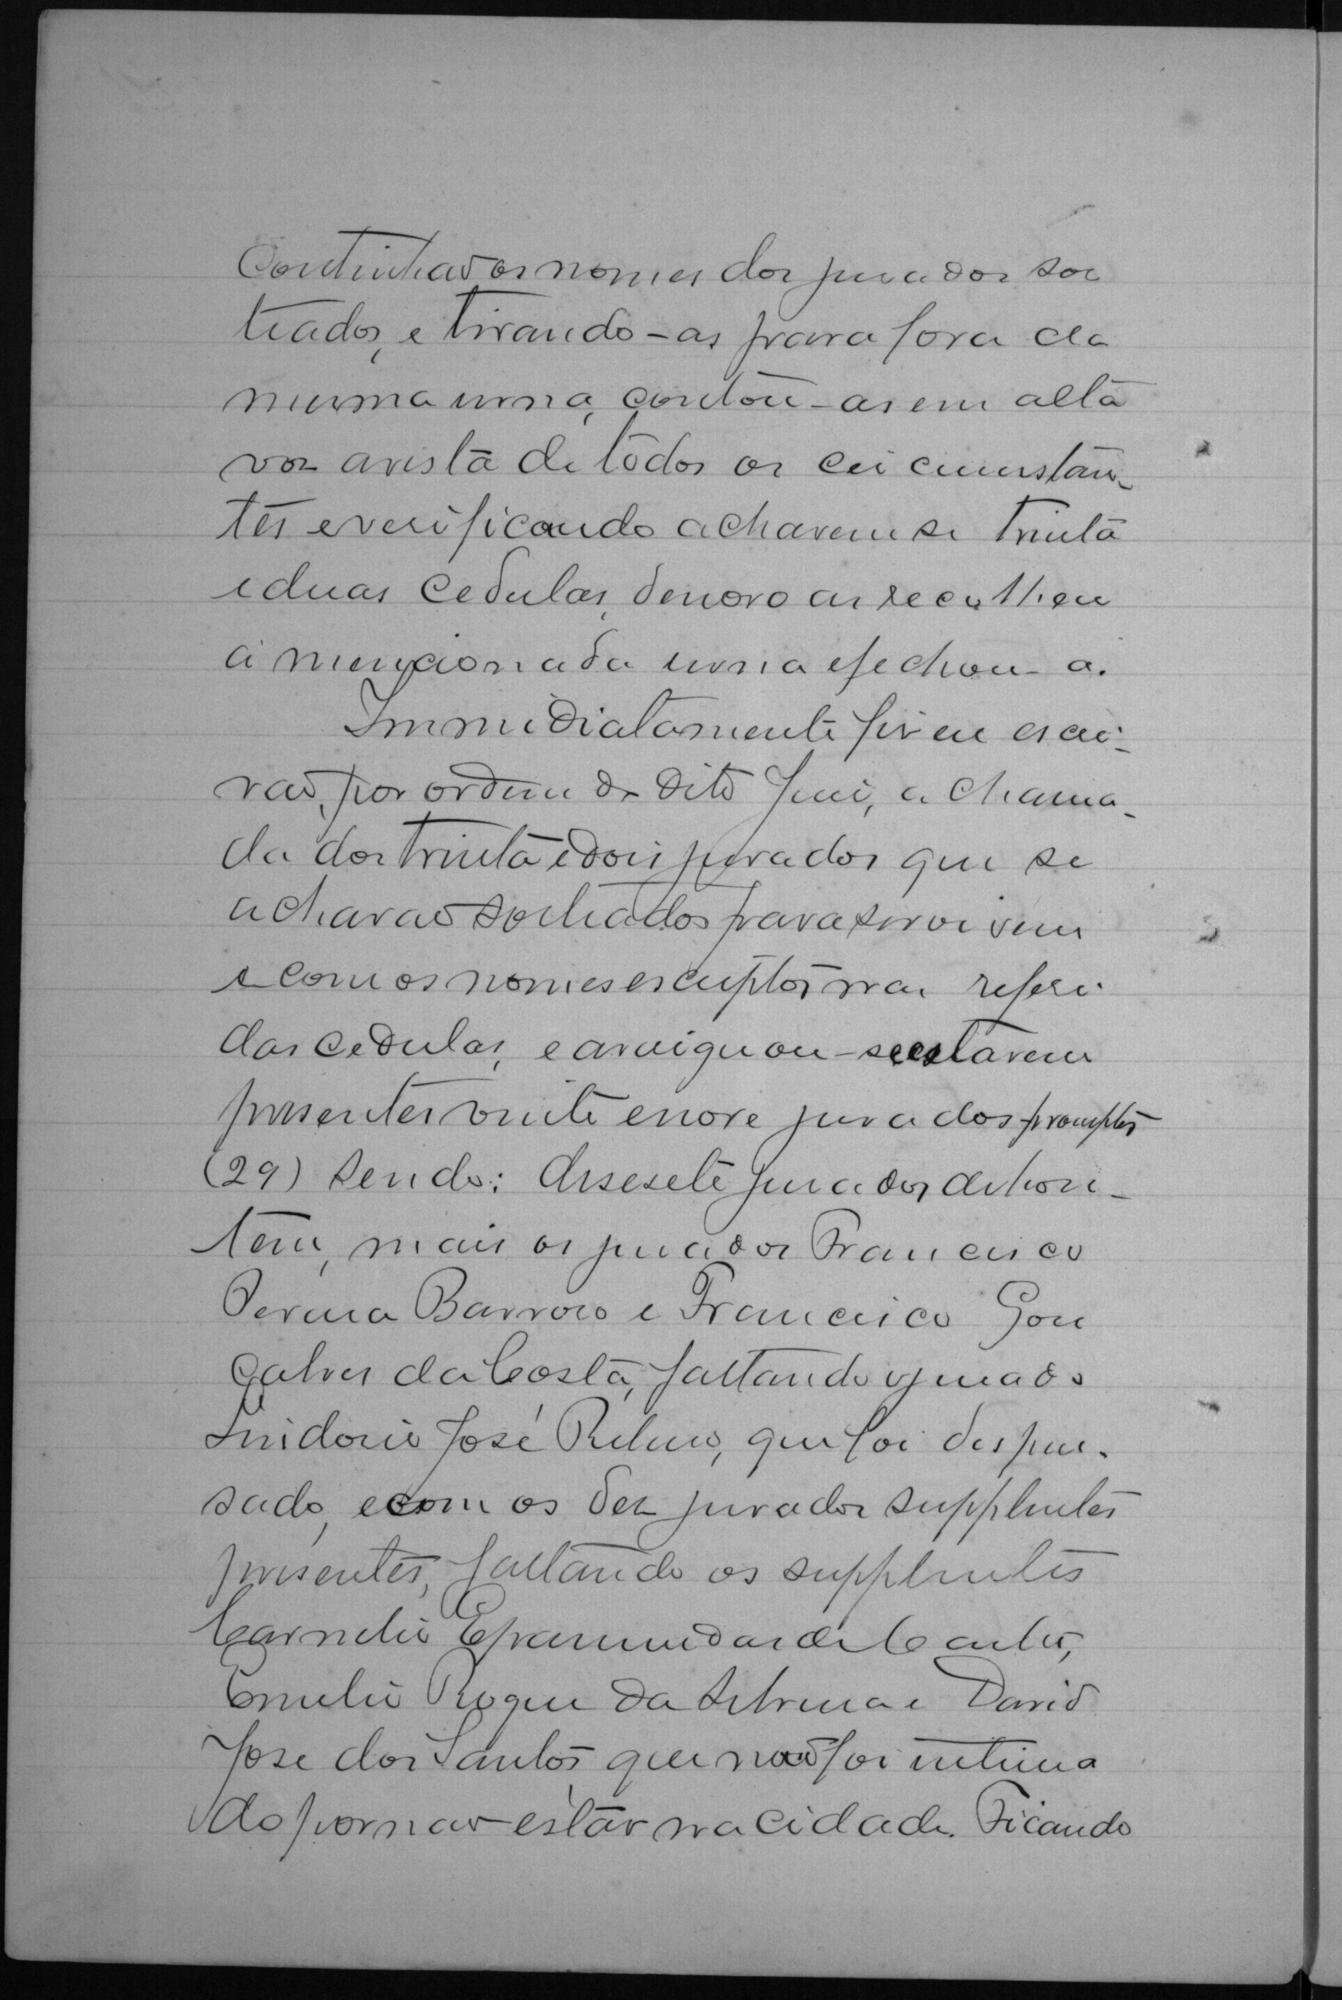 Continhaõ os nomes dos jurados sor
teados, e tirando-as para fora da
mesma urna, contou-as em alta
voz a vista de todos os circumstan-
tes e verificando acharem se trinta
e duas cedulas, de novo as recolheu
á mencionada urna e fechou-a.
Immidiatamente fiz eu escri-
vaõ, por ordem do dito Juiz, a chama-
da dos trinta e dois jurados que se
acharaõ sorteados para servirem
e com os nomes escriptos nas referi
das cedulas, e averiguou-se estarem
presentes vinte e nove jurados promptos
(29) sendo: desesete jurados de hon-
tem, mais os jurados Francisco
Pereira Barroso e Francisco Gon
çalves da Costa, faltando o jurado
José que foi dispen-
sado, e com os dez jurados supplentes
presentes, faltando os supplentes
Cornelio Epaminondas de Castro,
Emilio Roque da Silveira e David
Jose dos Santos, que naõ foi intima
do por nao estar na cidade. Ficando